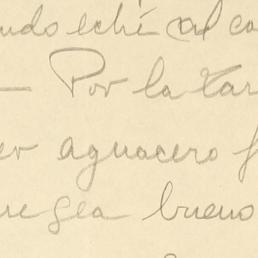 ndo eché al ca
— Por la tar
er aguacero f
ue sea bueno